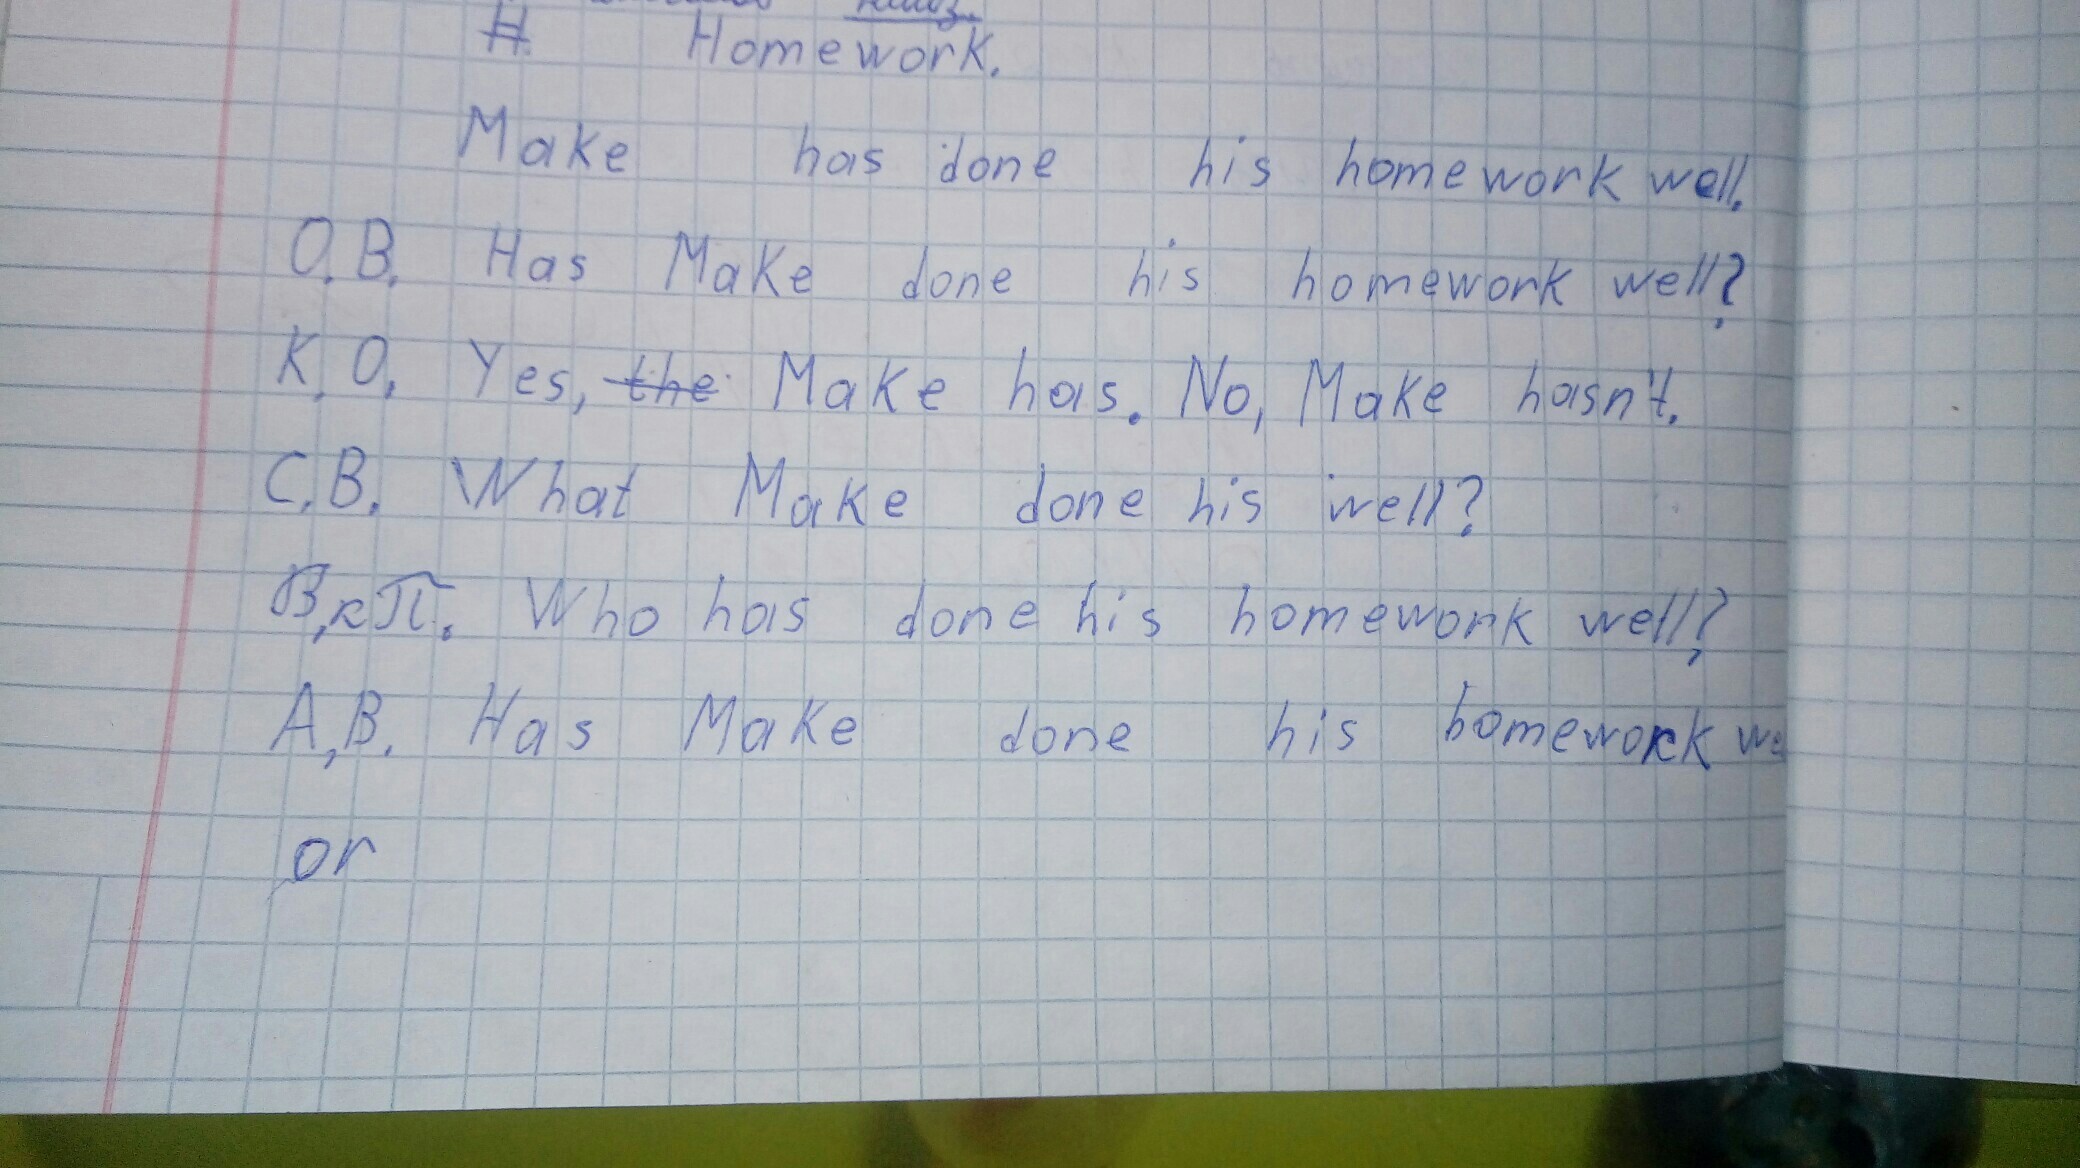 H Homework.
Make has done his homework well.
О.В. Has Make done his homework well?
К.О. Yes, the Make has. No, Make hasn't.
С.В. What Make done his well?
В.кП. Who has done his homework well?
А.В. Has Make done his homework we
or